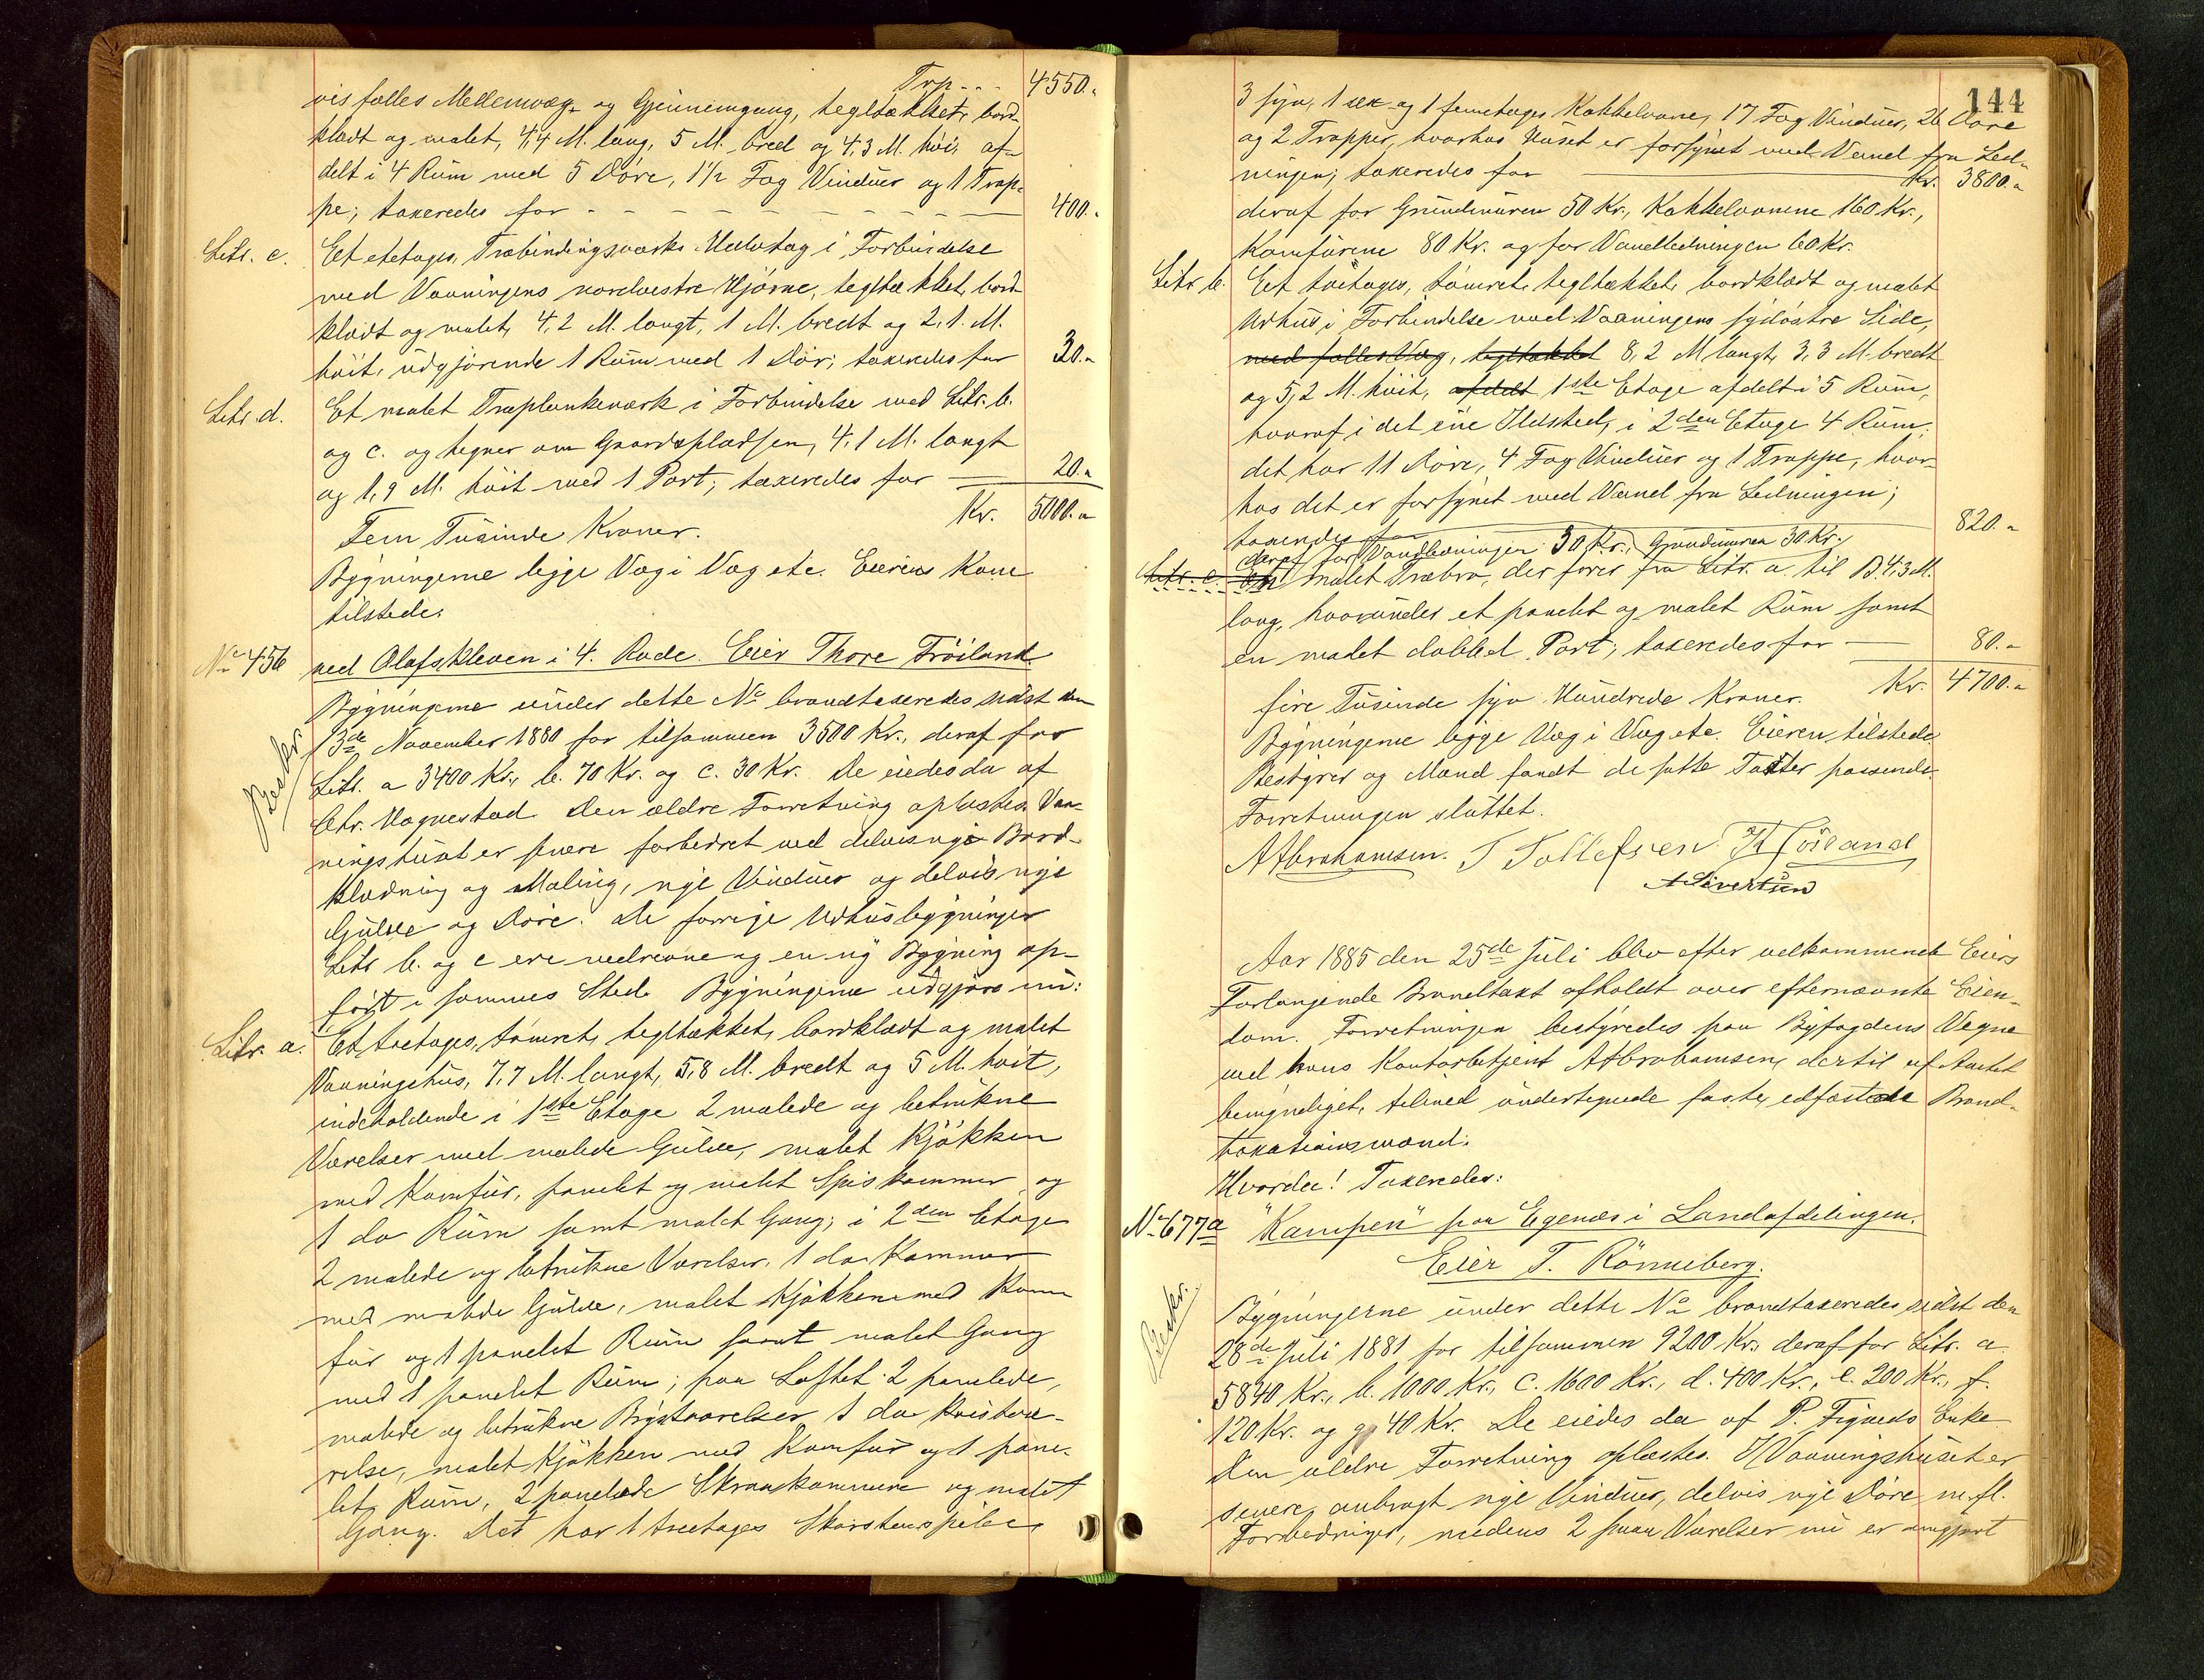 Trp - - - 4550.-
vis fælles Mellemvæg og Gjennemgang, tegltækket, bord-
klædt og malet, 4,4 M. lang, 5 M. bred og 4,3 M. höi, af-
delt i 4 Rum med 5 Döre, 1 1/2 Fag Vinduer og 1 Trap-
pe; taxeredes for - - - - - - - 400.-
Litr. c. Et etetages, Træbindingsværks Halvtag i Forbindelse
med Vaaningens nordvestre Hjörne, tegltækket, bord-
klædt og malet, 4,2 M. langt, 1 M. bredt og 2,1. M.
höit, udgjørende 1 Rum med 1 Dör; taxeredes for 30.-
Litr. d. Et malet Træplankeværk i Forbindelse med Litr. b.
og c. og hegner om Gaardspladsen, 4,1 M. langt
og 1,9 M. höit med 1 Port; taxeredes for 20.-
Fem Tusinde Kroner. Kr. 5000.-
Bygningerne ligge Væg i Væg etc. Eierens Kone
tilstede.
No 456 ved Olafskleven i 4. Rode. Eier Thore Fröiland
Bygningerne under dette No brandtaxeredes sidst den
13de November 1880 for tilsammen 3500 Kr., deraf for
Beskr.
Litr. a 3400 Kr., b. 70 Kr. og c. 30 Kr. De eiedes da af
Chr. Hognestad. Den ældre Forretning oplæstes. Vaa-
ningshuset er senere forbedret ved delvis nye Bord-
klædning og Maling, nye Vinduer og delvis nye
Gulve og Döre. De forrige Udhusbygninger
Litr b. og c ere nedrevne og en ny Bygning op-
fört i sammes Sted. Bygningerne udgjöre nu:
Litr. a. Et toetages, tömret, tegltækket, bordklædt og malet
Vaaningshus, 7,7 M. langt, 5,8 M. bredt og 5 M. höit,
indeholdende i 1ste Etage 2 malede og betrukne
Værelser med malede Gulve, malet Kjökken
med Komfur, panelet og malet Spiskammer og
1 do Rum samt malet Gang; i 2den Etage
2 malede og betrukne Værelser, 1 do Kammer
med malede Gulve, malet Kjökken med Kom-
fur og 1 panelet Rum samt malet Gang
med 1 panelet Rum; paa Loftet 2 panelede,
malede og betrukne Brystværelser 1 do Kvistvæ-
relse, malet Kjökken med Komfur og 1 pane-
let Rum, 2 panelede Skraakammere og malet
Gang. Det har 1 treetages Skorstenspibe,
144
3 fyr, 1 sex og 1 femetages Kakkelovne, 17 Fag Vinduer, 26 Döre
og 2 Trapper, hvorhos Huset er forsynet med Vand fra Led-
ningen; taxeredes for Kr. 3800.-
deraf for Grundmuren 50 Kr., Kakkelovnene 160 Kr.,
Komfurene 80 Kr. og for Vandledningen 60 Kr.
Litr b. Et toetages, tömret, tegltækket, bordklædt og malet
Udhus i Forbindelse med Vaaningens sydöstre Side,
med fælles Væg, tegltækket 8,2 M langt, 3,3 M. bredt
og 5,2 M. höit, afdelt 1ste Etage afdelt i 5 Rum,
hvoraf i det ene Ildsted, i 2den Etage 4 Rum;
det har 11 Döre, 4 Fag Vinduer og 1 Trappe, hvor-
hos det er forsynet med Vand fra Ledningen;
taxeredes for 820.-
deraf for Vandledningen 30 Kr., Grundmuren 30 Kr.
Litr. c. En malet Træbro, der förer fra Litr. a. til B. 4,3 M.
lang, hvorunder et panelet og malet Rum samt
en malet dobbel Port; taxeredes for 80.-
fire Tusinde syv Hundrede Kroner. Kr. 4700.-
Bygningerne ligge Væg i Væg etc. Eieren tilstede
Bestyrer og Mænd fandt de satte Taxter passende.
Forretningen sluttet.
A Abrahamsen. T Tollefsen Th Fröiland
A Sivertsen
Aar 1885 den 25de Juli blev efter vedkommende Eiers
Forlangende Brandtaxt afholdt over efternævnte Eien-
dom. Forretningen bestyredes paa Byfogdens Vegne
ved hans Kontorbetjent A Abrahamsen, dertil af Amtet
bemyndiget, tilmed undertegnede faste, edfæstede Brand-
taxationsmænd.
Hvorda! Taxeredes:
No 677a "Kampen" paa Egenæs i Landafdelingen.
Eier T. Rönneberg.
Beskr.
Bygningerne under dette No brandtaxeredes sidst den
28de Juli 1881 for tilsammen 9200 Kr., deraf for Litr. a.
5840 Kr., b. 1000 Kr., c. 1600 Kr., d. 400 Kr., e. 200 Kr., f.
120 Kr. og g. 40 Kr. De eiedes da af P. Enke
Den ældre Forretning oplæstes. I Vaaningshuset er
senere anbragt nye Vinduer, delvis nye Döre m. fl.
Forbedringer, medens 2 smaa Værelser nu er omgjort